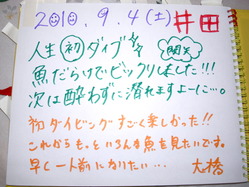 2010.9.4(土) 井田
人生初ダイブ 関矢
魚だらけでビックリしました!!!
次は酔わずに潜れますよーに…。
初ダイビングすごく楽しかった!!
これからもっといろんな魚を見たいです。
早く一人前になりたい… 大橋